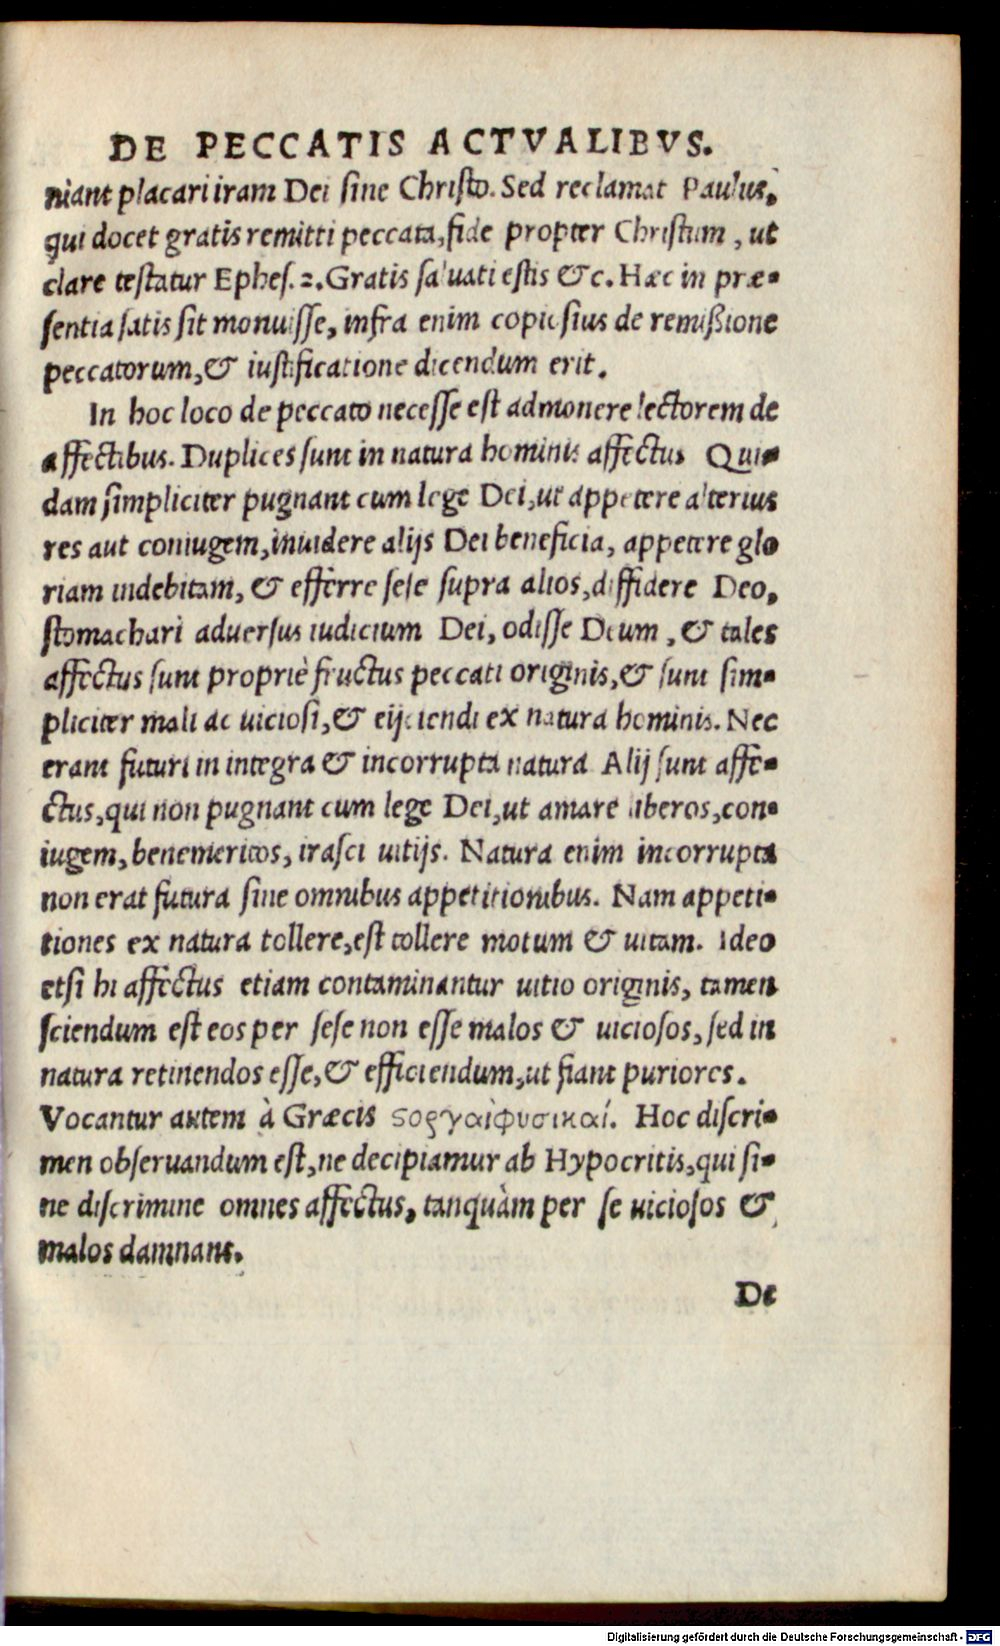 DE PECCATIS ACTVALIBVS.
niant placari iram Dei sine Christo. Sed reclamat Paulus,
qui docet gratis remitti peccata, fide propter Christum, ut
clare testatur Ephes. 2. Gratis saluati estis &c. Hæc in præ-
sentia satis sit monuisse, infra enim copiosius de remißione
peccatorum, & iustificatione dicendum erit.
In hoc loco de peccato necesse est admonere lectorem de
affectibus. Duplices sunt in natura hominis affectus Qui-
dam simpliciter pugnant cum lege Dei, ut appetere alterius
res aut coniugem, inuidere alijs Dei beneficia, appetere glo
riam indebitam, & efferre sese supra alios, diffidere Deo,
stomachari aduersus iudicium Dei, odisse Deum, & tales
affectus sunt propriè fructus peccati originis, & sunt sim-
pliciter mali ac uiciosi, & eijciendi ex natura hominis. Nec
erant futuri in integra & incorrupta natura Alij sunt affe-
ctus, qui non pugnant cum lege Dei, ut amare liberos, con-
iugem, benemeritos, irasci uitijs. Natura enim incorrupta
non erat futura sine omnibus appetitionibus. Nam appeti-
tiones ex natura tollere, est tollere motum & uitam. Ideo
etsi hi affectus etiam contaminantur uitio originis, tamen
sciendum est eos per sese non esse malos & uiciosos, sed in
natura retinendos esse, & efficiendum, ut fiant puriores.
Vocantur autem à Græcis ϛοργαὶ φυσικαί. Hoc discri-
men obseruandum est, ne decipiamur ab Hypocritis, qui si-
ne discrimine omnes affectus, tanquàm per se uiciosos &
malos damnant.
De
Digitalisierung gefördert durch die Deutsche Forschungsgemeinschaft - DFG